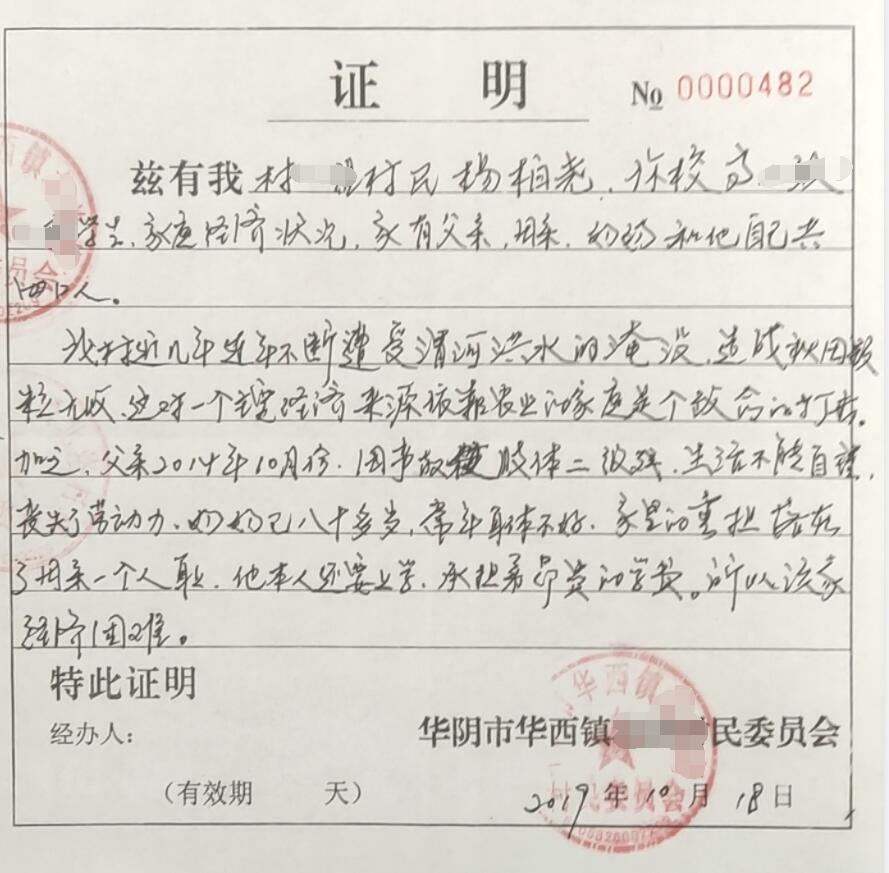 证 明 № 0000482
兹有我村 村民杨柏尧，你校高 级
学生，家庭经济状况，家有父亲，母亲，奶奶和他自己共
四口人。
我村近几年连年不断遭受渭河洪水的淹没，造成秋田颗
粒无收，这对一个主要经济来源依靠农业的家庭是个致命的打击。
加之，父亲2014年10月份，因事故 肢体二级残，生活不能自理，
丧失了劳动力，奶奶已八十多岁，常年身体不好，家里的重担落在
了母亲一个人身上，他本人还要上学，承担着昂贵的学费。所以该家
经济困难。
特此证明
经办人： 华阴市华西镇 民委员会
（有效期 天） 2019年10月18日
西镇
员会
华西镇
村民委员会